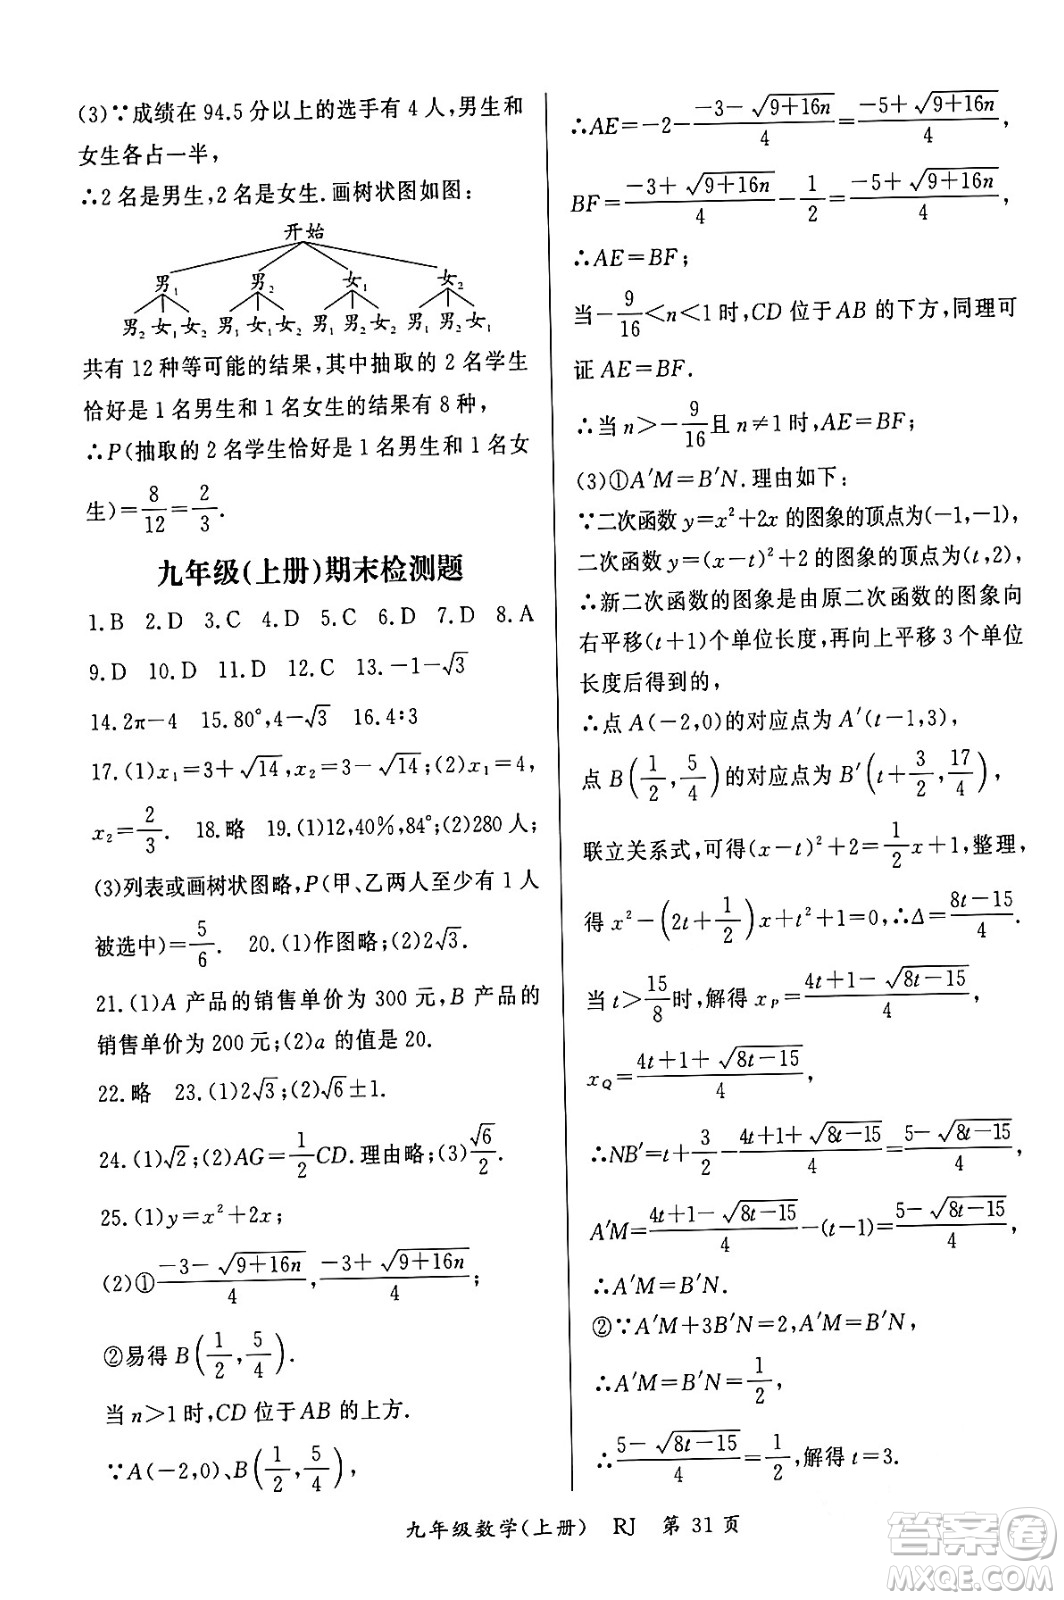 (3)∵成绩在 94.5 分以上的选手有 4 人,男生和
女生各占一半,
∴2 名是男生,2 名是女生.画树状图如图:
开始
男₁ 男₂ 女₁ 女₂
男₂ 女₁ 女₂ 男₁ 女₁ 女₂ 男₁ 男₂ 女₂ 男₁ 男₂ 女₁
共有 12 种等可能的结果,其中抽取的 2 名学生
恰好是 1 名男生和 1 名女生的结果有 8 种,
∴P(抽取的 2 名学生恰好是 1 名男生和 1 名女
生)=8/12=2/3.
九年级(上册)期末检测题
1.B 2.D 3.C 4.D 5.C 6.D 7.D 8.A
9.D 10.D 11.D 12.C 13.-1-√3
14.2π-4 15.80°,4-√3 16.4∶3
17.(1)x₁=3+√14,x₂=3-√14;(2)x₁=4,
x₂=2/3. 18.略 19.(1)12,40%,84°;(2)280 人;
(3)列表或画树状图略,P(甲、乙两人至少有 1 人
被选中)=5/6. 20.(1)作图略;(2)2√3.
21.(1)A 产品的销售单价为 300 元,B 产品的
销售单价为 200 元;(2)a 的值是 20.
22.略 23.(1)2√3;(2)√6±1.
24.(1)√2;(2)AG=1/2CD.理由略;(3)√6/2.
25.(1)y=x²+2x;
(2)①(-3-√(9+16n))/4,(-3+√(9+16n))/4;
②易得 B(1/2,5/4).
当 n>1 时,CD 位于 AB 的上方.
∵A(-2,0)、B(1/2,5/4),
∴AE=-2-(-3-√(9+16n))/4=(-5+√(9+16n))/4,
BF=(-3+√(9+16n))/4-1/2=(-5+√(9+16n))/4,
∴AE=BF;
当-9/16<n<1 时,CD 位于 AB 的下方,同理可
证 AE=BF.
∴当 n>-9/16且 n≠1 时,AE=BF;
(3)①A′M=B′N.理由如下:
∵二次函数 y=x²+2x 的图象的顶点为(-1,-1),
二次函数 y=(x-t)²+2 的图象的顶点为(t,2),
∴新二次函数的图象是由原二次函数的图象向
右平移(t+1)个单位长度,再向上平移 3 个单位
长度后得到的,
∴点 A(-2,0)的对应点为 A′(t-1,3),
点 B(1/2,5/4)的对应点为 B′(t+3/2,17/4),
联立关系式,可得(x-t)²+2=1/2x+1,整理,
得 x²-(2t+1/2)x+t²+1=0,∴Δ=(8t-15)/4.
当 t>15/8时,解得 xP=(4t+1-√(8t-15))/4,
xQ=(4t+1+√(8t-15))/4,
∴NB′=t+3/2-(4t+1+√(8t-15))/4=(5-√(8t-15))/4,
A′M=(4t+1-√(8t-15))/4-(t-1)=(5-√(8t-15))/4,
∴A′M=B′N.
②∵A′M+3B′N=2,A′M=B′N,
∴A′M=B′N=1/2,
∴(5-√(8t-15))/4=1/2,解得 t=3.
九年级数学(上册) RJ 第 31 页
答案圈
MXQE.COM